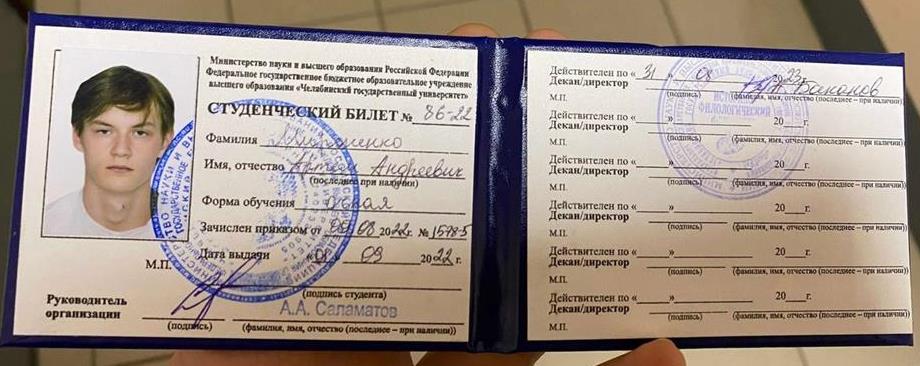 Министерство науки и высшего образования Российской Федерации
Федеральное государственное бюджетное образовательное учреждение
высшего образования «Челябинский государственный университет»
СТУДЕНЧЕСКИЙ БИЛЕТ № 86-22
Фамилия
Имя, отчество Андреевич
(последнее при наличии)
Форма обучения очная
Зачислен приказом от 08 2022 г. № 1578-5
Дата выдачи «01» 09 2022 г.
М.П.
(подпись студента)
Руководитель
организации
А.А. Саламатов
(подпись) (фамилия, имя, отчество (последнее – при наличии))
Действителен по « 31 » 08 2023 г.
Декан/директор
М.П. (подпись) (фамилия, имя, отчество (последнее – при наличии)
Действителен по « » 20 г.
Декан/директор
М.П. (подпись) (фамилия, имя, отчество (последнее – при наличии)
Действителен по « » 20 г.
Декан/директор
М.П. (подпись) (фамилия, имя, отчество (последнее – при наличии)
Действителен по « » 20 г.
Декан/директор
М.П. (подпись) (фамилия, имя, отчество (последнее – при наличии)
Действителен по « » 20 г.
Декан/директор
М.П. (подпись) (фамилия, имя, отчество (последнее – при наличии)
Действителен по « » 20 г.
Декан/директор
М.П. (подпись) (фамилия, имя, отчество (последнее – при наличии))